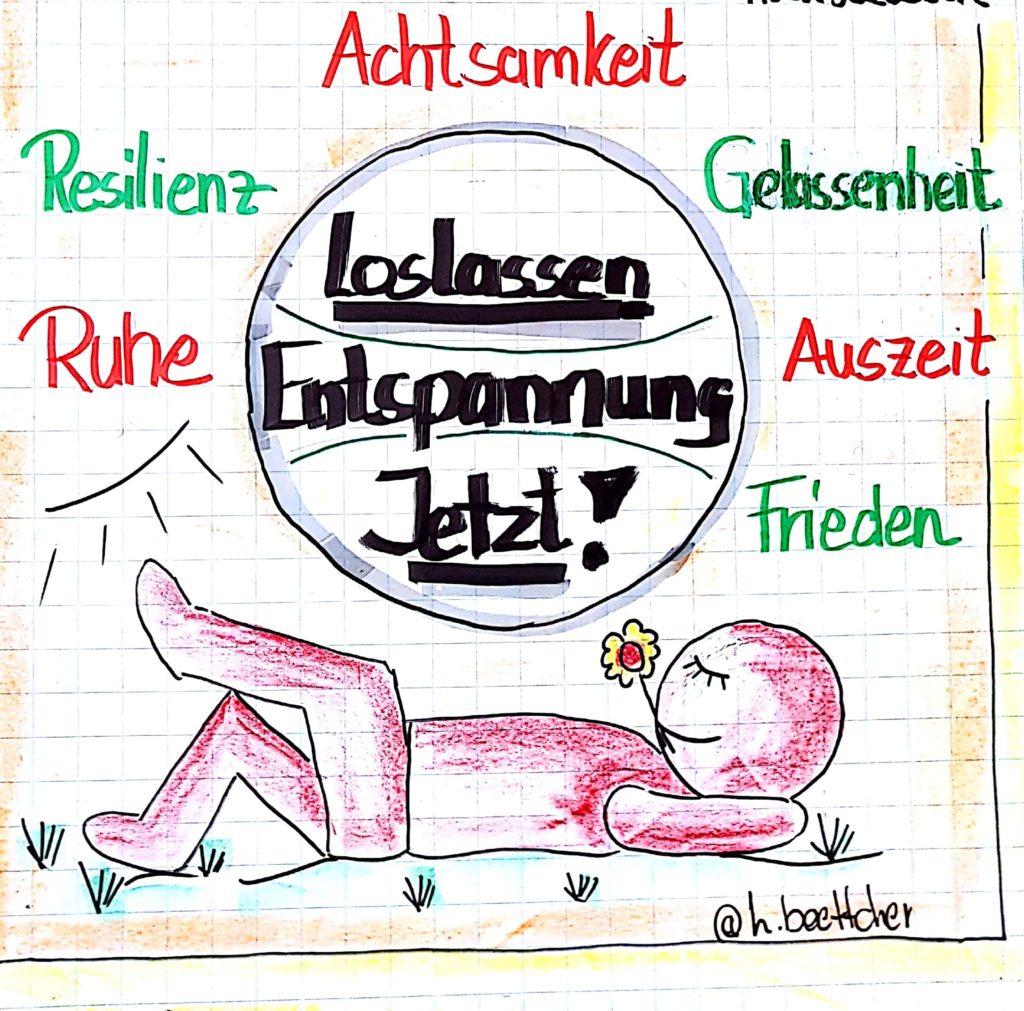 Achtsamkeit
Resilienz
Gelassenheit
Loslassen
Ruhe
Entspannung
Auszeit
Jetzt!
Frieden
@h.boettcher